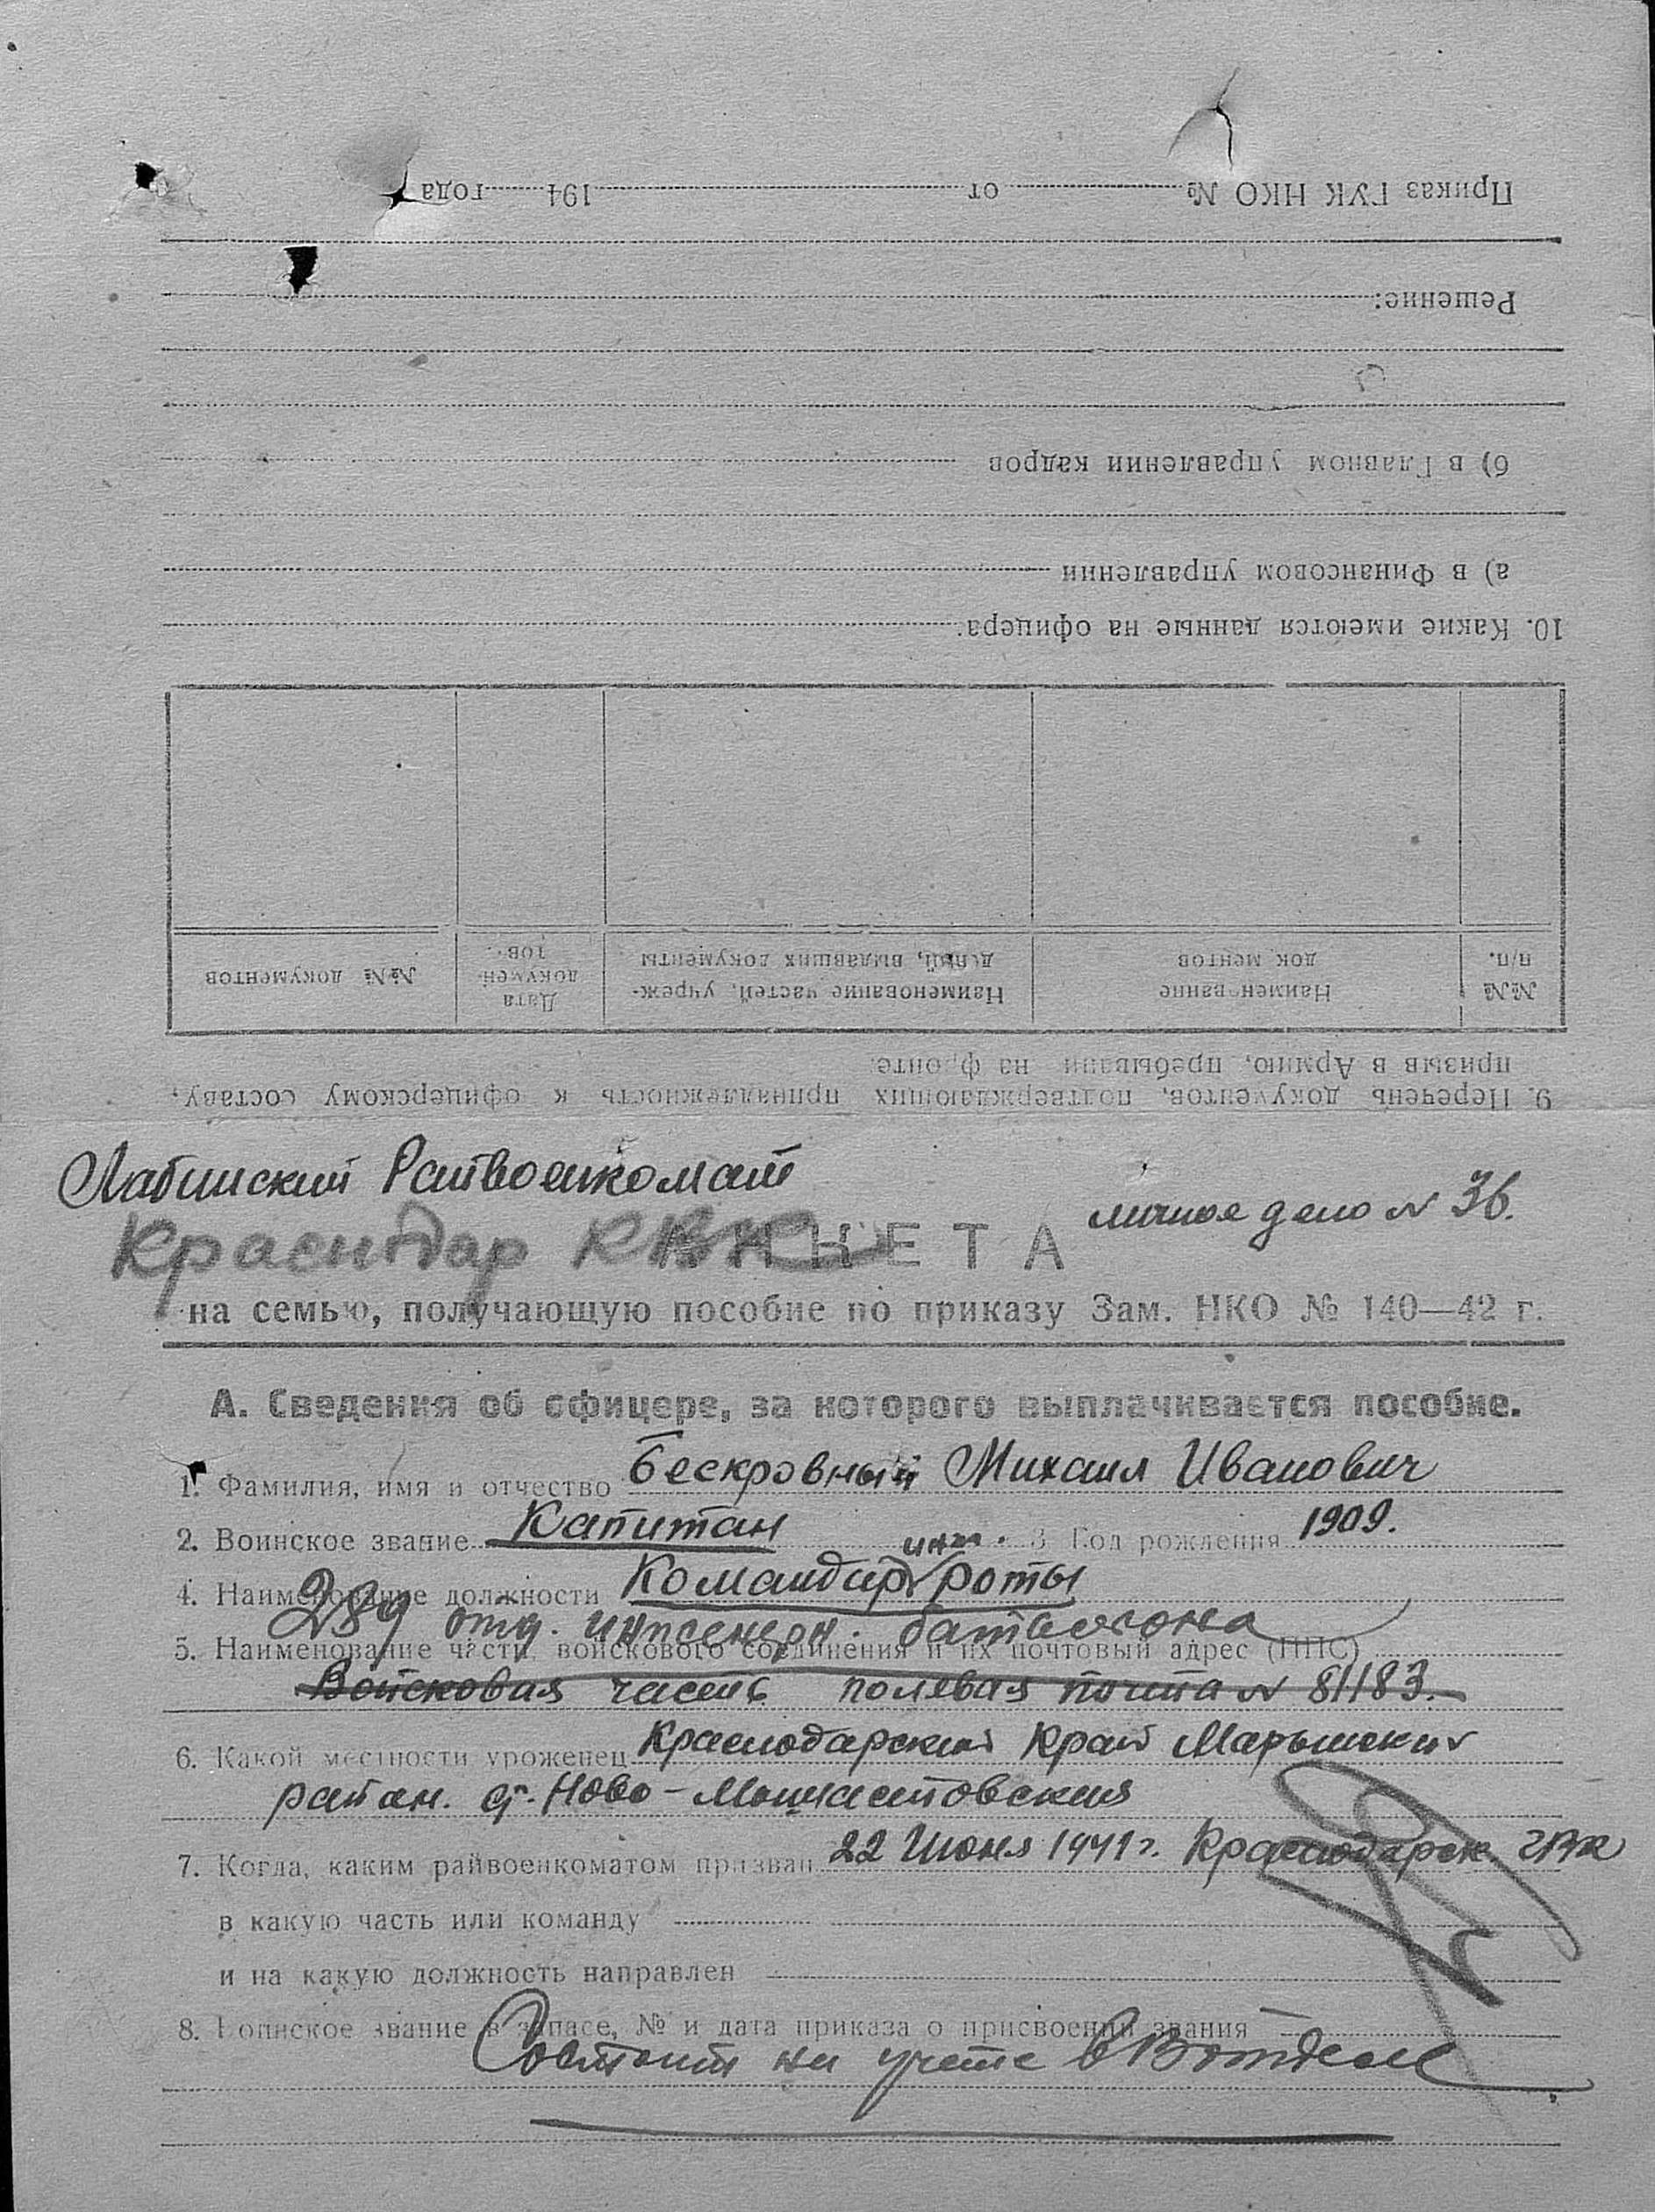 Приказ ГУК НКО № от 194 года
Решение:
б) в Главном управлении кадров
а) в Финансовом управлении
10. Какие имеются данные на офицера:
№№ п/п. Наименование док ментов Наименование частей, учреждений, выдавших документы Дата документов. №№ документов
9. Перечень документов, подтверждающих принадлежность к офицерскому составу,
призыв в Армию, пребывании на фронте:
Лабинский Райвоенкомат
личное дело № 36.
Краснодар КВК
АНКЕТА
на семью, получающую пособие по приказу Зам. НКО № 140—42 г.
А. Сведения об офицере, за которого выплачивается пособие.
1. Фамилия, имя и отчество Бескровный Михаил Иванович
2. Воинское звание Капитан 3 Год рождения 1909.
4. Наименование должности Командир инж. роты
289 отд. инженерн. батальона
5. Наименование части, войскового соединения и их почтовый адрес (ППС)
Войсковая часть полевая почта № 81183.
6. Какой местности уроженец Краснодарский край Марьянский
район. ст. Ново-Мышастовская
7. Когда, каким райвоенкоматом призван 22 Июня 1941 г. Краснодарск. ГВК
в какую часть или команду
и на какую должность направлен
8. Воинское звание в запасе, № и дата приказа о присвоении звания
Состоит на учете в отделе